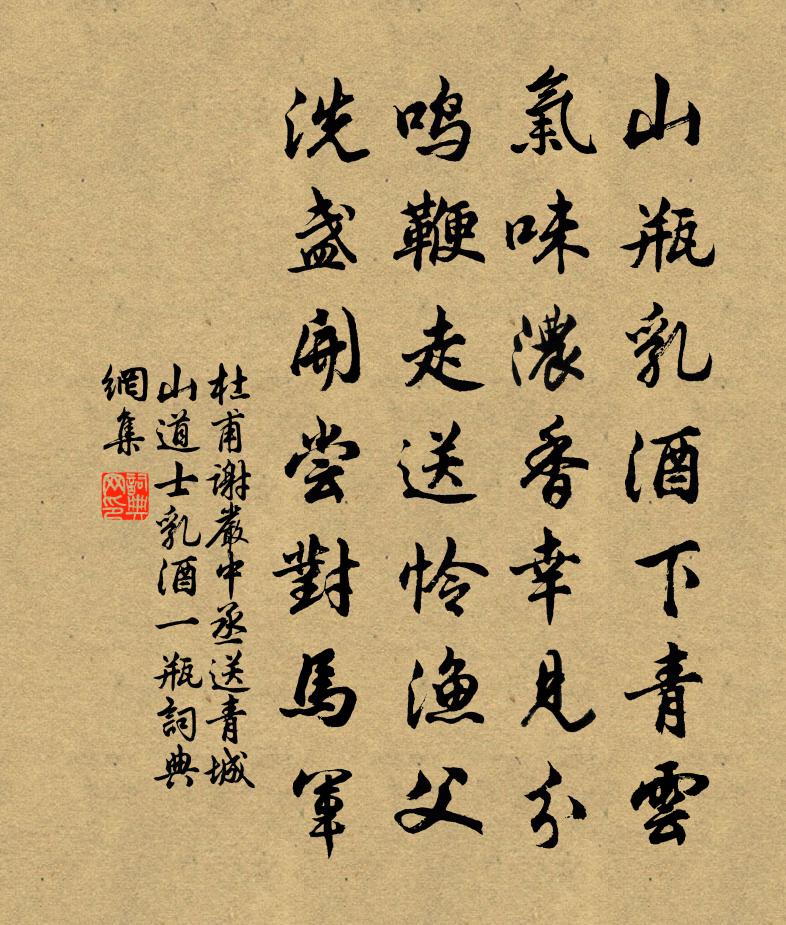 山瓶乳酒下青雲
氣味濃香幸見分
鳴鞭走送怜漁父
洗盞開嘗對馬軍
杜甫謝嚴中丞送青城
山道士乳酒一瓶詞典
網集
詞典
网印